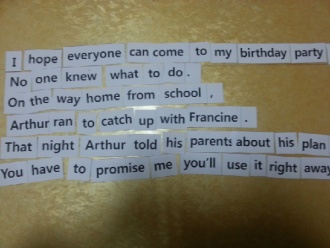 I hope everyone can come to my birthday party
No one knew what to do.
On the way home from school,
Arthur ran to catch up with Francine.
That night Arthur told his parents about his plan
You have to promise me you'll use it right away